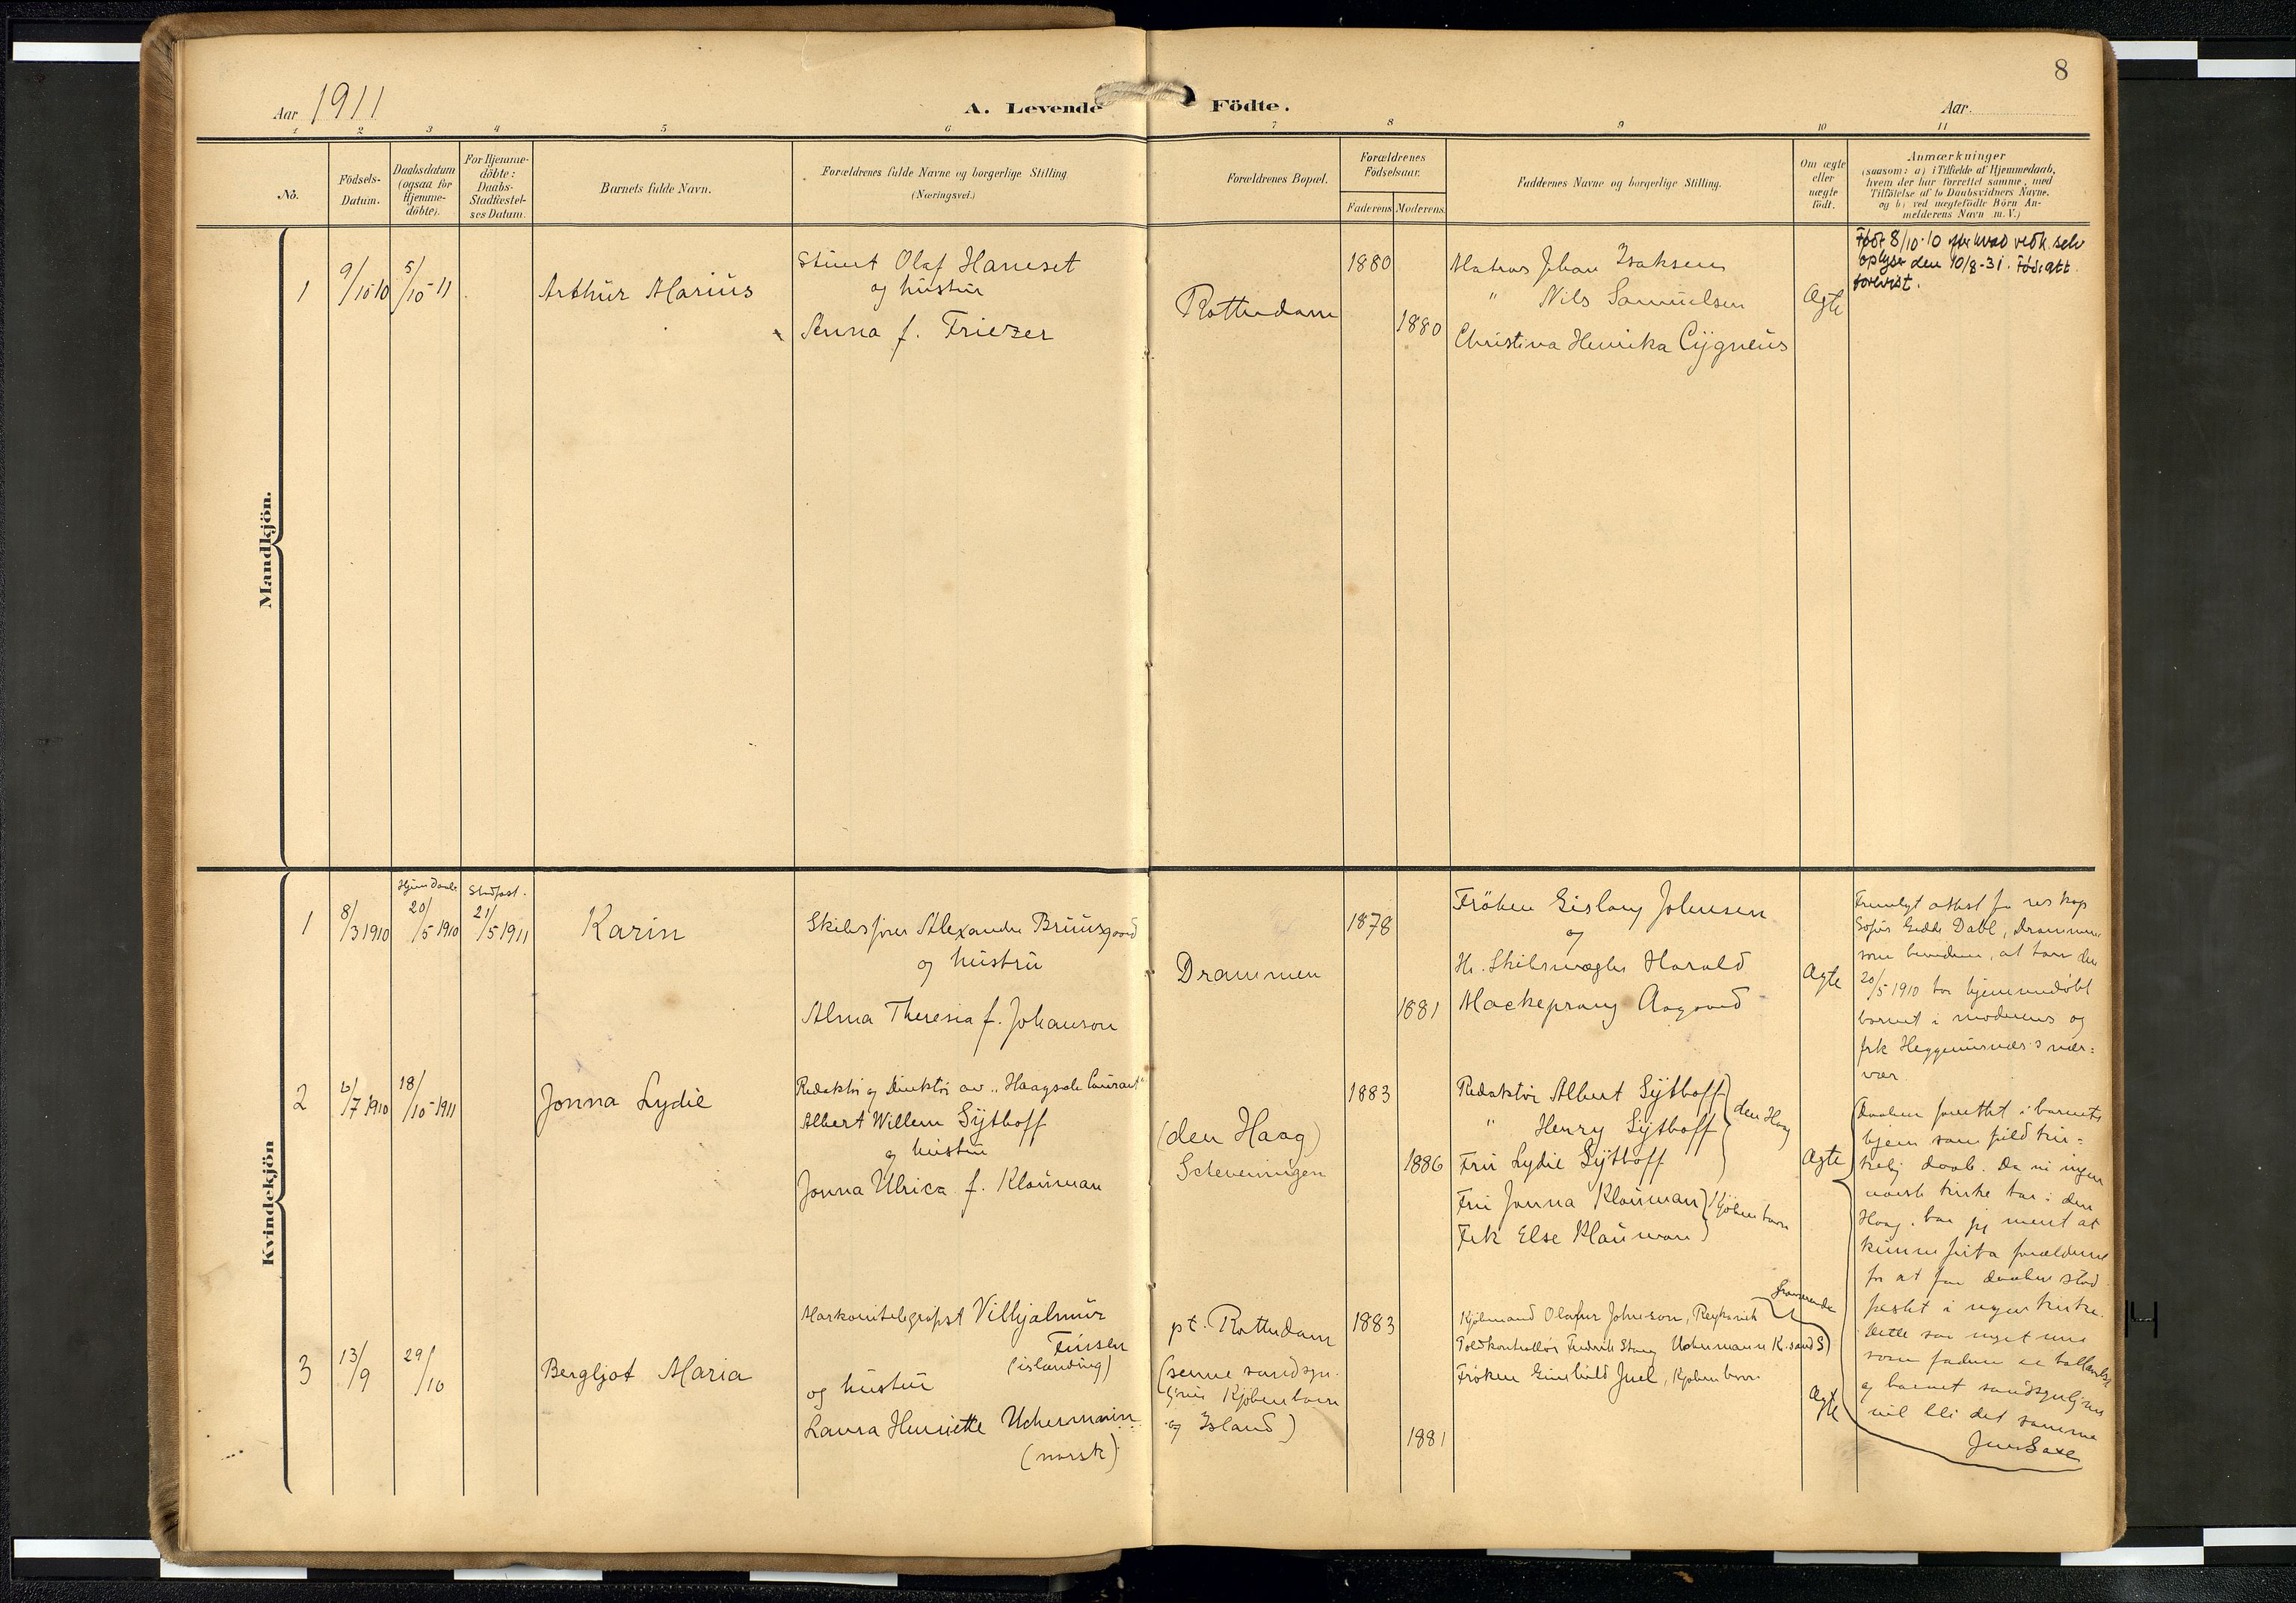 8
Aar 1911
A. Levende Födte.
Aar.
1 2 3 4 5 6 7 8 9 10 11
No.
Födsels-
Datum.
Daabsdatum
(ogsaa for
Hjemme-
döbte).
For Hjemme-
döbte:
Daabs-
Stadfæstel-
ses Datum.
Barnets fulde Navn.
Forældrenes fulde Navne og borgerlige Stilling
(Næringsvei.)
Forældrenes Bopæl.
Forældrenes
Födselsaar.
Faderens Moderens.
Faddernes Navne og borgerlige Stilling.
Om ægte
eller
uægte
födt.
Anmærkninger
(saasom: a) i Tilfælde af Hjemmedaab,
hvem der har forrettet samme, med
Tilföielse af to Daabsvidners Navne,
og b) ved uægtefödte Börn An-
melderens Navn m. V.)
Mandkjön.
1
9/10 10
5/10-11
Arthur Marius
Stuert Olaf Haneset
og hustru
Anna f. Friezer
Rotterdam
1880
1880
Matros Johan Isaksen
" Nils Samuelsen
Christina Henrika Cygneus
Ægte
Född 8/10-10 efter hvad vedk. selv
oplyser den 10/8-31. Föd.att.
forevist.
Kvindekjön
1
8/3 1910
Hjemdaab
20/5 1910
Stadfæst.
21/5 1911
Karin
Skibsfører Alexander Bruusgaard
og hustru
Alma Theresia f. Johanson
Drammen
1878
1881
Fröken Gislaug Johnsen
og
Hr. Skibsmægler Harald
Mackeprang Aagaard
Ægte
Fremlagt attest fra res kap
Gedde Dahl, Drammen
som, at han den
20/5 1910 har hjemmedöbt
barnet i moderens og
frk Heggemsnæs's nær=
vær
2
6/7 1910
18/10-1911
Jonna Lydie
Redaktör og Direktör av "Haagsche Courant"
Albert Willem Sijthoff
og hustru
Jonna Ulrica f. Klauman
(den Haag)
Scheveningen
1883
1886
Redaktör Albert Sijthoff
" Henry Sijthoff
Fru Lydie Sijthoff
den Haag
Fru Jonna Klauman
Frk Else Klauman
Kjöbenhavn
Ægte
Daaben forrettet i barnets
hjem som fuld kir=
kelig daab. Da vi ingen
norsk kirke har i den
Haag, har jeg ment at
kunne frita forældrene
for at faa daaben stad
fæstet i nogen kirke.
Dette saa meget mere
som faderen er hollandsk
og barnet sandsynligvis
vil bli det samme
Jens Saxe
3
13/9
29/10
Bergljot Maria
Markonitelegrafist Vilhjalmur
Finsen
(islænding)
og hustru
Laura Henriette Uchermann
(norsk)
pt. Rotterdam
(senere sandsyn-
ligvis Kjöbenhavn
og Island)
1883
1881
Fraværende
Kjöbmand Olafur Johnson, Reykavik
Toldkontrollör Fredrik Stang Uchermann K.sand S
Fröken Gunhild Juel, Kjöbenhavn
Ægte